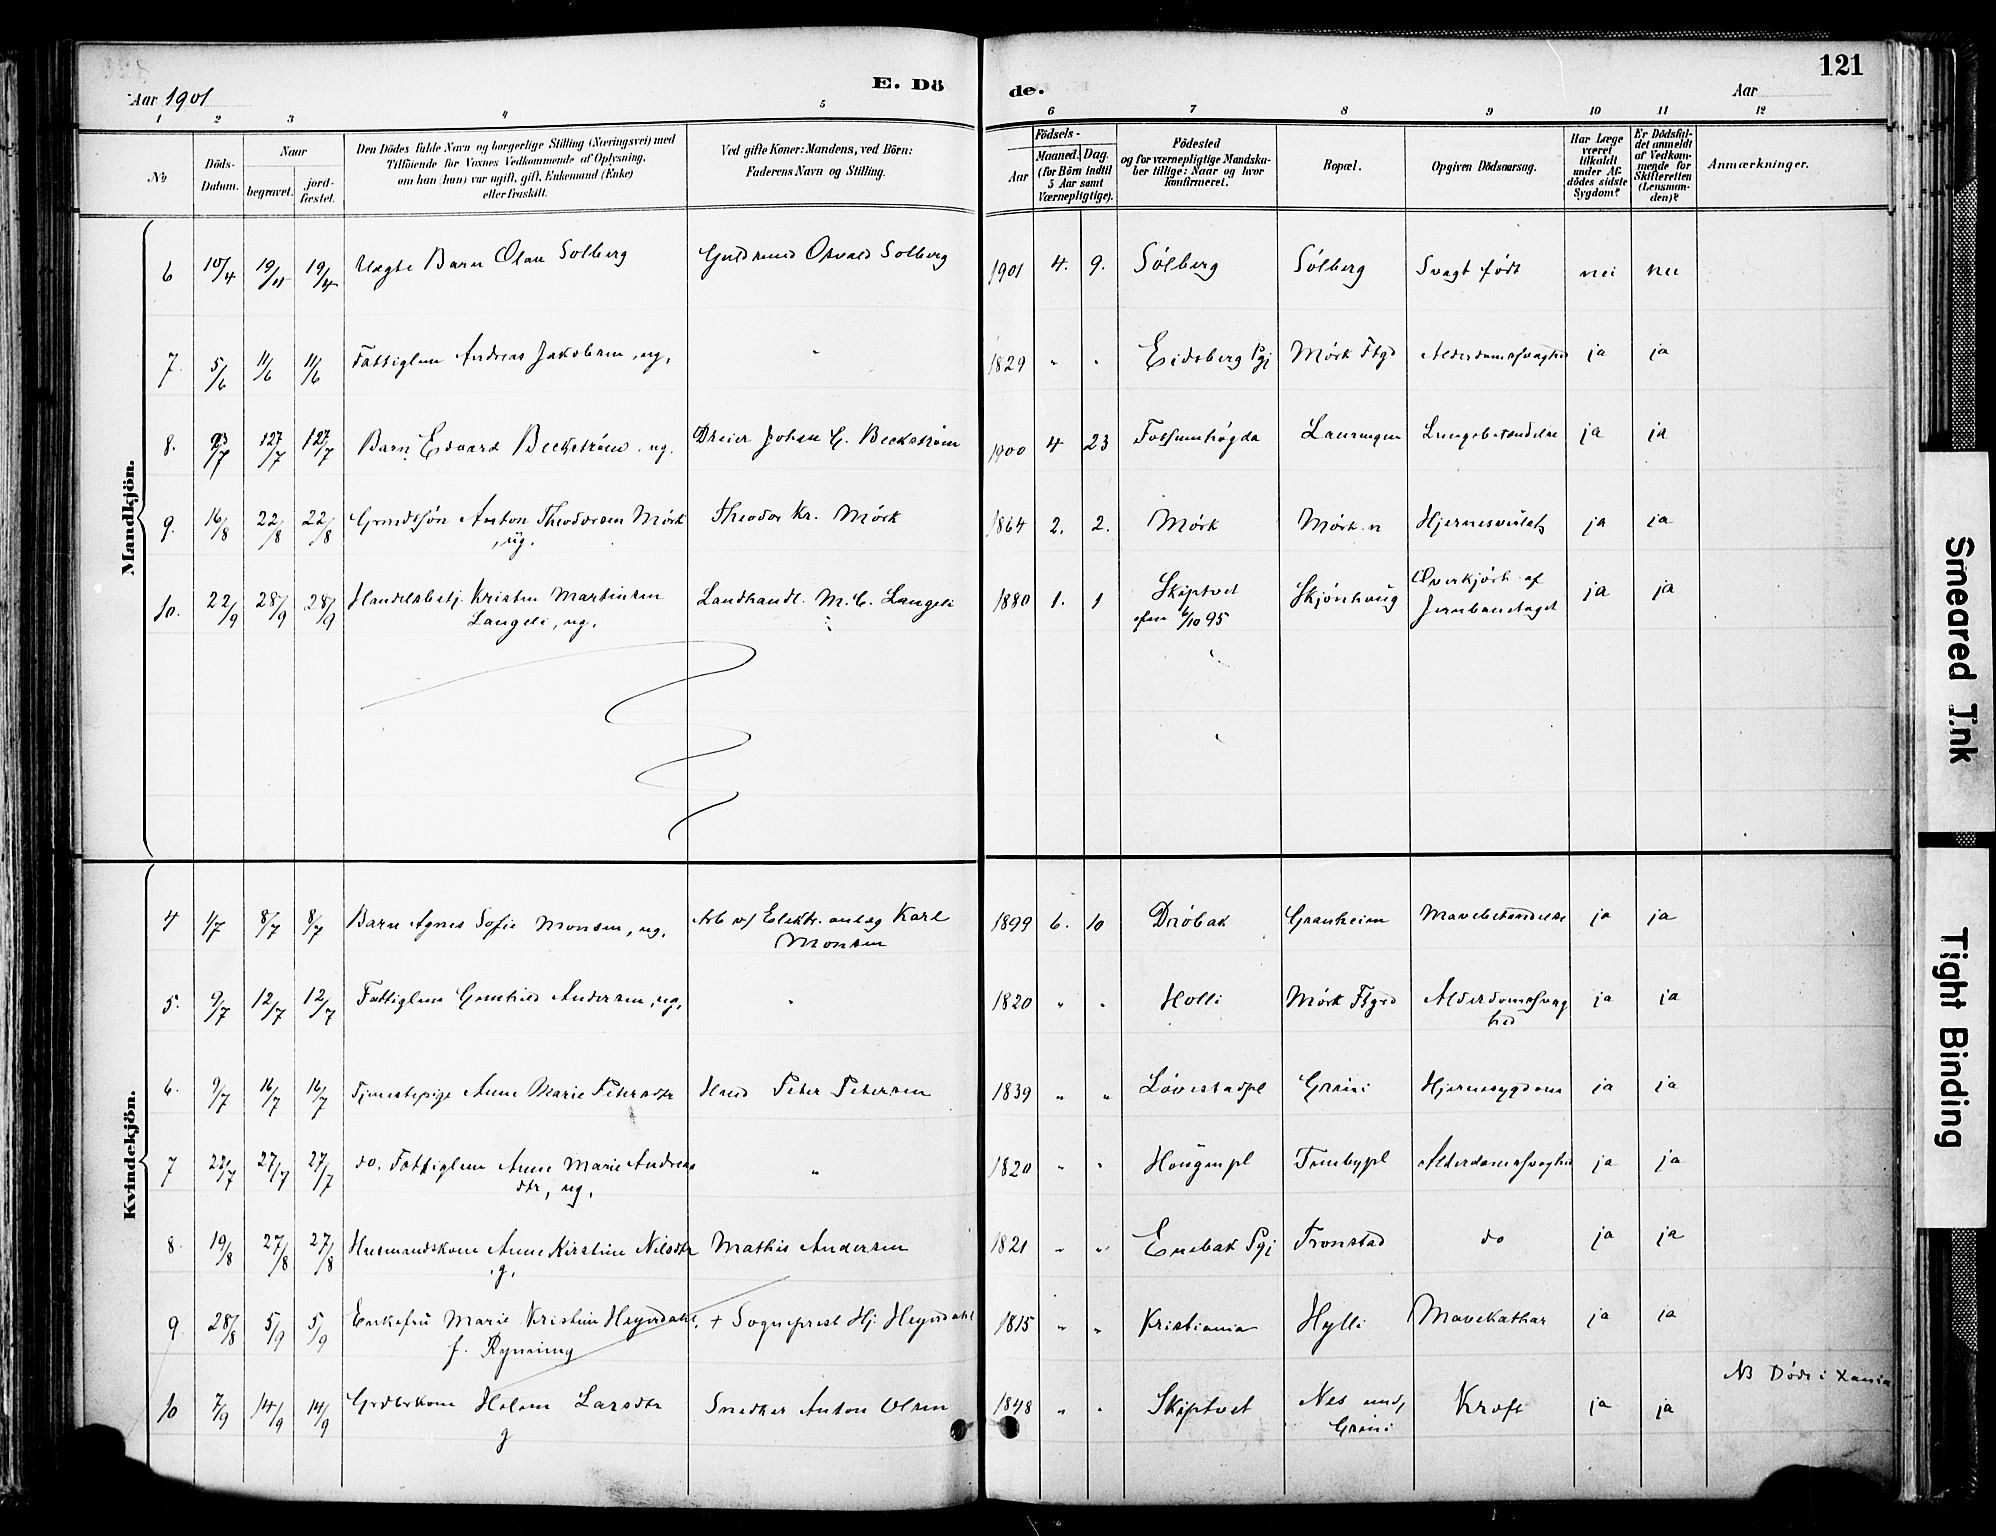 121
Aar 1901
E. Dö
de.
Aar
1 2 3 4 5 6 7 8 9 10 11 12
No
Döds-Datum.
Naar
begravet.
jord-fæstet.
Den Dödes fulde Navn og borgerlige Stilling (Næringsvei) med
Tilföiende for Voxnes Vedkommende af Oplysning,
om han (hun) var ugift, gift, Enkemand (Enke)
eller fraskilt.
Ved gifte Koner: Mandens, ved Börn:
Faderens Navn og Stilling.
Födsels-
Aar
Maaned. Dag.
(for Börn indtil
5 Aar samt
Værnepligtige).
Födested
og for værnepligtige Mandska-
ber tillige: Naar og hvor
konfirmeret.
Bopæl.
Opgiven Dödsaarsag.
Har Læge
været
tilkaldt
under Af-
dödes sidste
Sygdom?
Er Dödsfal-
det anmeldt
af Vedkom-
mende for
Skifteretten
(Lensman-
den)?
Anmærkninger.
Mandkjön.
6 10/4 19/4 19/4 Uægte Barn Olau Solberg Guldmund Osvald Solberg 1901 4. 9. Sólberg Sólberg Svagt født nei nei
7 5/6 11/6 11/6 Fattiglem Andreas Jakobsen, ug. " 1829 " " Eidsberg Pgj Mórk Ftgd Alderdomssvaghed ja ja
8. 27/7 27/7 Barn Edvard Beckstróm, ug. Dreier Johan C. Beckstróm 1900 4 23 Fossumhógda Lungebetændelse ja ja
9. 16/8 22/8 22/8 Grndssón Anton Theodorsen Mórk
, ug. Theodor Kr. Mórk 1864 2. 2. Mórk Mórk n ja ja
10. 22/9 28/9 28/9 Handelsbetj. Kristen Martinsen
Langeli, ug. Landhandl. M. C. Langeli 1880 1. 1 Skiptvet
6/10 95 Skjónhaug Overkjórt af
Jernbanetoget ja ja
Kvindekjön.
4 1/7 8/7 8/7 Barn Agnes Sofie Monsen, ug. Arb v/ Elektr. anlæg Karl
Monsen 1899 6. 10 Dróbak Granheim Mavebetændelse ja ja
5. 9/7 12/7 12/7 Fattiglem Gunhild Andersen, ug. " 1820 " " Holli Mórk Ftgrd Alderdomssvag
hed ja ja
6. 9/7 16/7 16/7 Tjenestepige Anne Marie Petersdtr Husmd Peter Petersen 1839 " " Lóvestadpl Gróni Hjernesygdom ja ja
7 22/7 27/7 27/7 do. Fattiglem Anne Marie Andreas
dtr, ug. " 1820 " " Haugenpl Tenebypl Alderdomssvaghed ja ja
8. 19/8 27/8 27/8 Husmandskone Anne Kirstine Nilsdtr
, g. Mathis Andersen 1821 " " Enebak Pgj Tronstad do ja ja
9 28/8 5/9 5/9 Enkefru Marie Kristine Heyerdahl,
f. Rynning + Sogneprest Hj. Heyerdahl 1815 " " Kristiania Hylli Mavekathar ja ja
10 7/9 14/9 14/9 Grdbrkone Helene Larsdtr
g Snedker Anton Olsen 1848 " " Skiptvet Nes und,
Gróni Kræft ja ja NB Döde i Xania
Smeared Ink
Tight Binding